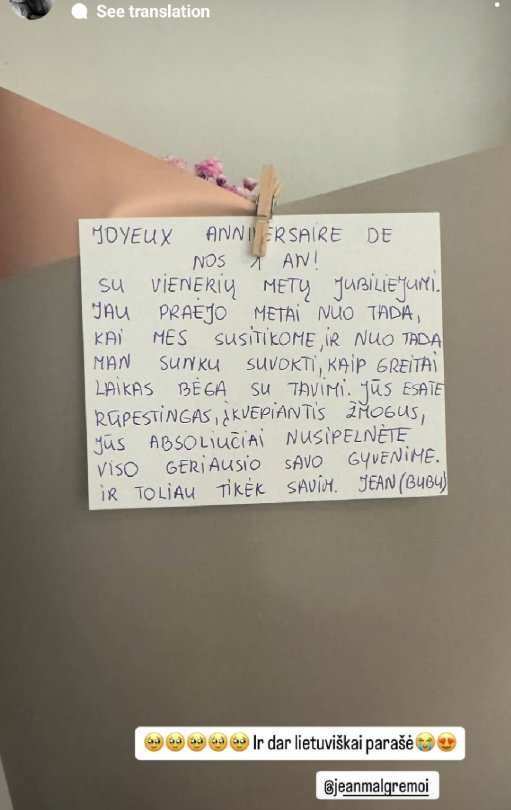 See translation
JOYEUX ANNIVERSAIRE DE
NOS 1 AN!
SU VIENERIŲ METŲ JUBILIEJUMI.
JAU PRAĖJO METAI NUO TADA,
KAI MES SUSITIKOME, IR NUO TADA
MAN SUNKU SUVOKTI, KAIP GREITAI
LAIKAS BĖGA SU TAVIMI. JŪS ESATE
RŪPESTINGAS, ĮKVEPIANTIS ŽMOGUS,
JŪS ABSOLIUČIAI NUSIPELNĖTE
VISO GERIAUSIO SAVO GYVENIME.
IR TOLIAU TIKĖK SAVIM. JEAN (BUBU)
🥹🥹🥹🥹🥹 Ir dar lietuviškai parašė😭😍
@jeanmalgremoi